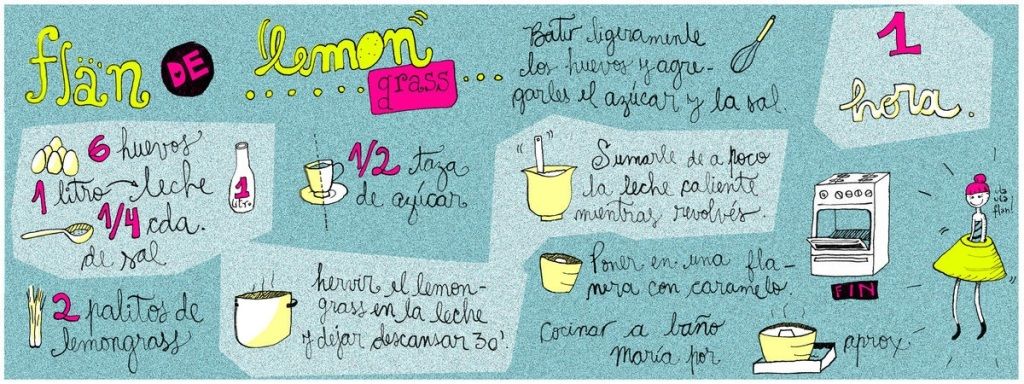 flän DE lemon
grass
6 huevos
1 litro leche
1 LITRO
1/4 cda.
de sal
2 palitos de
lemongrass
1/2 taza
de azúcar
hervir el lemon-
grass en la leche
y dejar descansar 30'.
Batir ligeramente
los huevos y agre-
garles el azúcar y la sal.
Sumarle de a poco
la leche caliente
mientras revolvés.
Poner en una fla-
nera con caramelo.
Cocinar a baño
maría por
aprox.
1
hora.
FIN
ula
ula
flan!